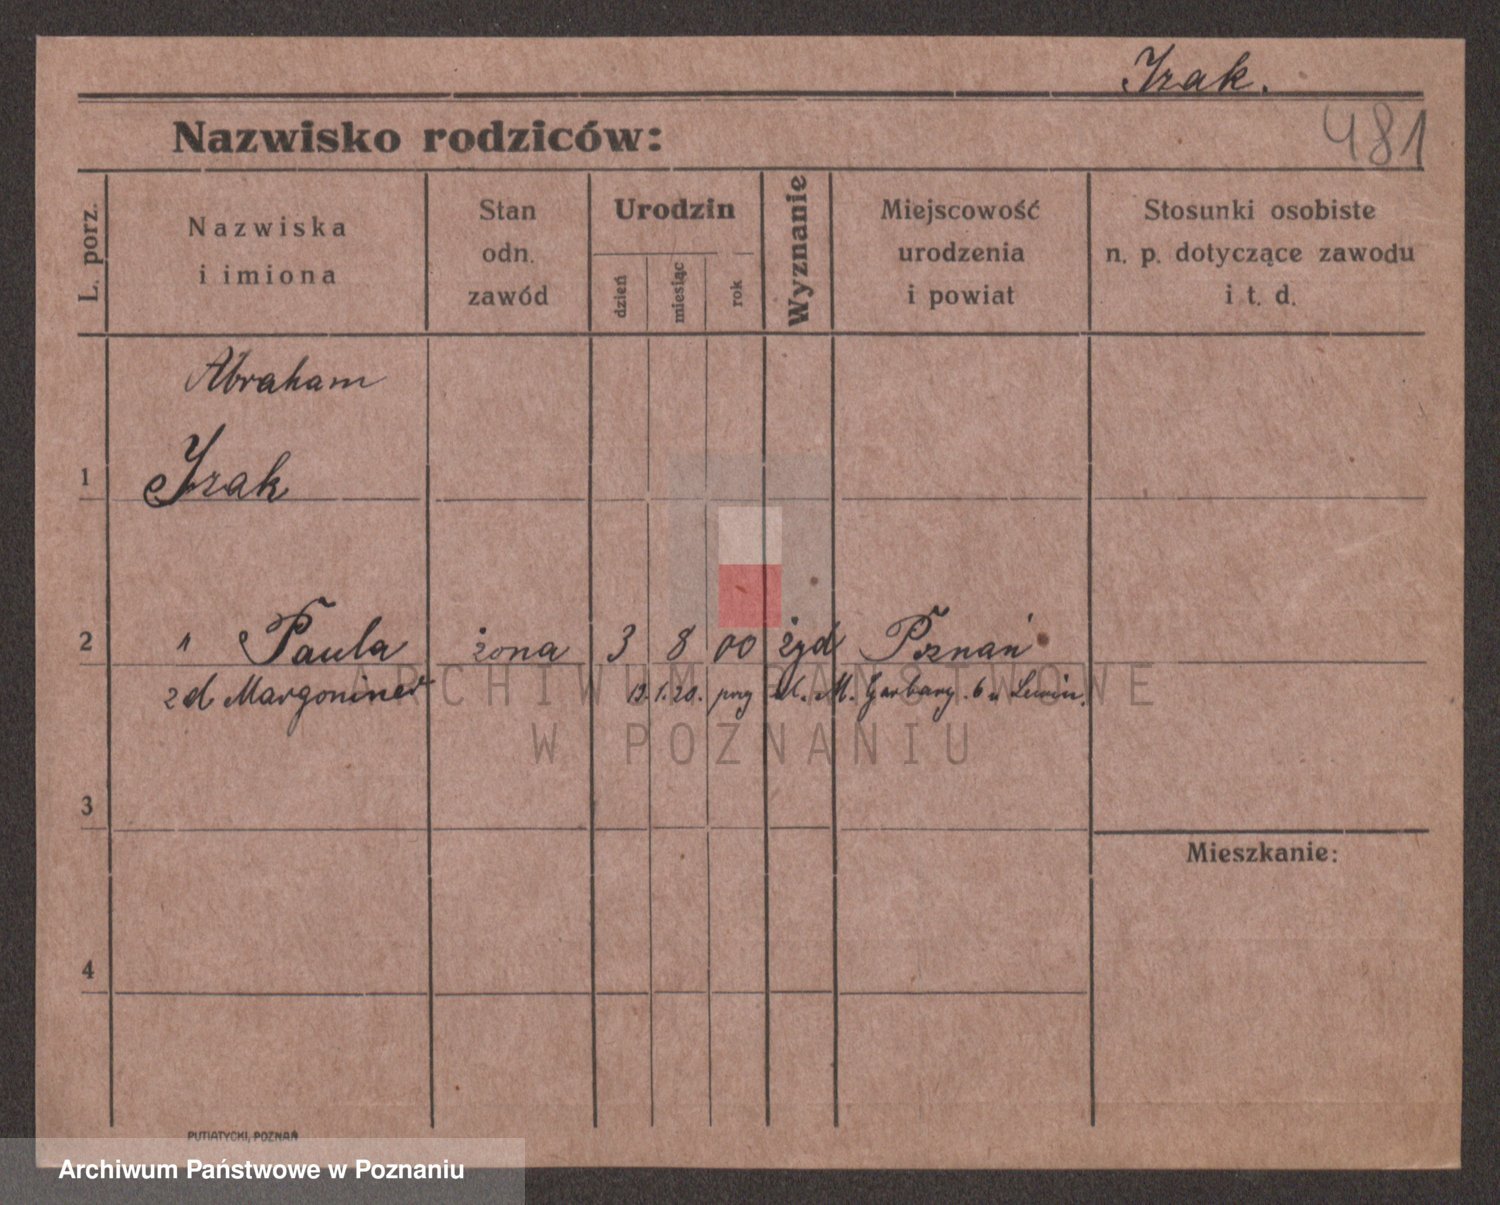 Izak.
Nazwisko rodziców:
481
L. porz.
Nazwiska
i imiona
Stan
odn.
zawód
Urodzin
dzień
miesiąc
rok
Wyznanie
Miejscowość
urodzenia
i powiat
Stosunki osobiste
n. p. dotyczące zawodu
i t. d.
Abraham
1 Izak
2 " Paula żona 3 8 00 żyd Poznań
zd Margoniner 12.1.20. przy ul. M. Garbary. 6 u Lewin.
ARCHIWUM PAŃSTWOWE
W POZNANIU
3
Mieszkanie:
4
PUTIATYCKI, POZNAŃ
Archiwum Państwowe w Poznaniu